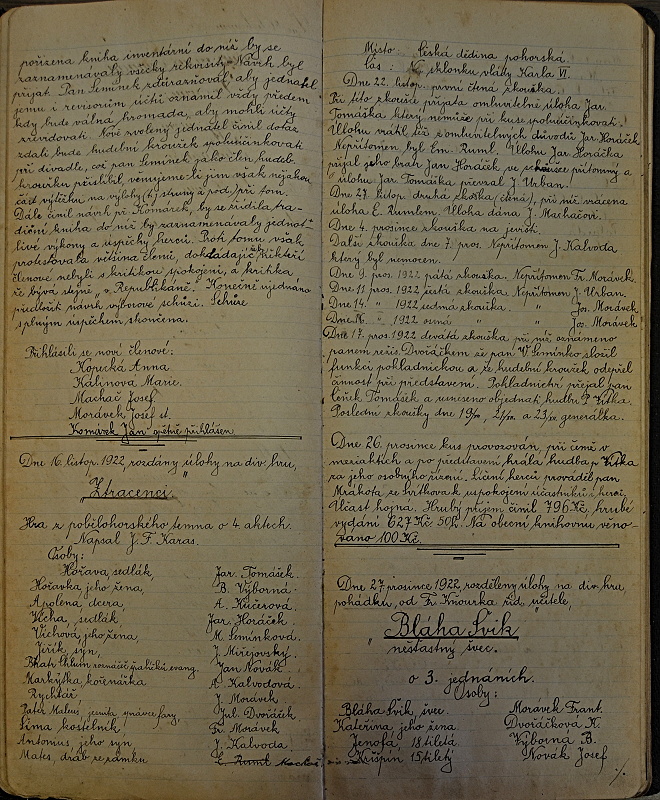 pořízena kniha inventární do níž by se
zaznamenávaly všecky rekvisity. Návrh byl
přijat. Pan Semínek zdůrazňoval, aby jednatel
jemu i revisorům účtů oznámil vždy předem
kdy bude valná hromada, aby mohli účty
zrevidovati. Nově zvolený jednatel činil dotaz
zdali bude hudební kroužek spoluúčinkovati
při divadle, což pan Semínek jako člen hudeb.
kroužku přislíbil, věnujeme-li jim však nějakou
část výtěžku na výlohy (struny a pod.) při tom.
Dále činil návrh př. Komárek, by se zřídila tra-
diční kniha do níž by zaznamenávaly jednot-
livé výkony a úspěchy herců. Proti tomu však
protestovala většina členů, dokládajíc někteří
členové nebyli s kritikou spokojeni, a kritika
že bývá stejně „v Republikáně." Konečně ujednáno
předložit návrh výborové schůzi. Schůze
s plným úspěchem skončena.
Přihlásili se noví členové:
Kopecká Anna
Kalinova Marie.
Machač Josef
Morávek Josef st.
Komárek Jan opětně přihlášen
Dne 16. listop. 1922 rozdány úlohy na div. hru,
„Ztracenci"
Hra z pobělohorského temna o 4 aktech.
Napsal J. F. Karas.
Osoby:
Hořava, sedlák, Jar. Tomášek.
Hořavka jeho žena, B. Výborná.
Apolena, dcera, A. Kučerová.
Vícha, sedlák, Jar. Horáček
Víchová, jeho žena, M. Semínková.
Jiřík, syn, J. Miřejovský.
Bratr Chlum evang. Jan Novák.
Markytka kořenářka A. Kalvodová.
Rychtář J. Morávek
Pater Mateuš, jesuita správce fary, Jul. Dvořáček
Šíma kostelník, Fr. Morávek
Antonius, jeho syn, J. Kalvoda.
Mates, dráb ze zámku E. Ruml
Místo: Česká dědina pohorská.
Čas: Na sklonku vlády Karla VI.
Dne 22. listop. první čtená zkouška.
Při této zkoušce přijata omluvitelně úloha Jar.
Tomáška, který nemůže při kusu spoluúčinkovati.
Úlohu vrátil též z omluvitelných důvodů Jar. Horáček
Nepřítomen byl Em. Ruml. Úlohu Jar. Horáčka
přijal jeho bratr Jan Horáček ve zkoušce přítomný a
úlohu Jar. Tomáška převzal J. Urban.
Dne 27. listop. druhá zkouška (čtená), při níž vrácena
úloha E. Rumlem. Úloha dána J. Machačovi.
Dne 4. prosince zkouška na jevišti.
Další zkouška dne 7. pros. Nepřítomen J. Kalvoda
který byl nemocen.
Dne 9. pros. 1922 pátá zkouška. Nepřítomen Fr. Morávek.
Dne 11. pros. 1922 šestá zkouška. Nepřítomen J. Urban.
Dne 14. " 1922 sedmá zkouška. " Jos. Morávek
Dne 16. " 1922 osmá " " Jos. Morávek
Dne 17. pros. 1922 devátá zkouška při níž oznámeno
panem režis. Dvořáčkem že pan V. Semínko složil
funkci pokladnickou a že hudební kroužek odepřel
činnost při představení. Pokladnictví přejal pan
Čeněk Tomášek a usneseno objednati hudbu P. Vitka.
Poslední zkoušky dne 19/XII, 21/XII a 23/XII generálka.
Dne 26. prosince kus provozován, při čemž v
meziaktích a po představení hrála hudba p. Vitka
za jeho osobního řízení. Líčení herců prováděl pan
Mrákota ze Svrtkova k uspokojení účastníků i herců.
Účast hojná. Hrubý příjem činil 796 Kč, hrubé
vydání 627 Kč 50 h. Na obecní knihovnu věno-
váno 100 Kč.
Dne 27. prosince 1922, rozděleny úlohy na div. hru,
pohádku, od Fr. Khourka říd. učitele,
„Bláha Švik
nešťastný švec."
o 3. jednáních.
Osoby:
Bláha Švik, švec Morávek Frant.
Kateřina jeho žena Dvořáčková K.
Jenofa, 18. tiletá Výborná B.
Krišpín 15. tiletý Novák Josef
./.